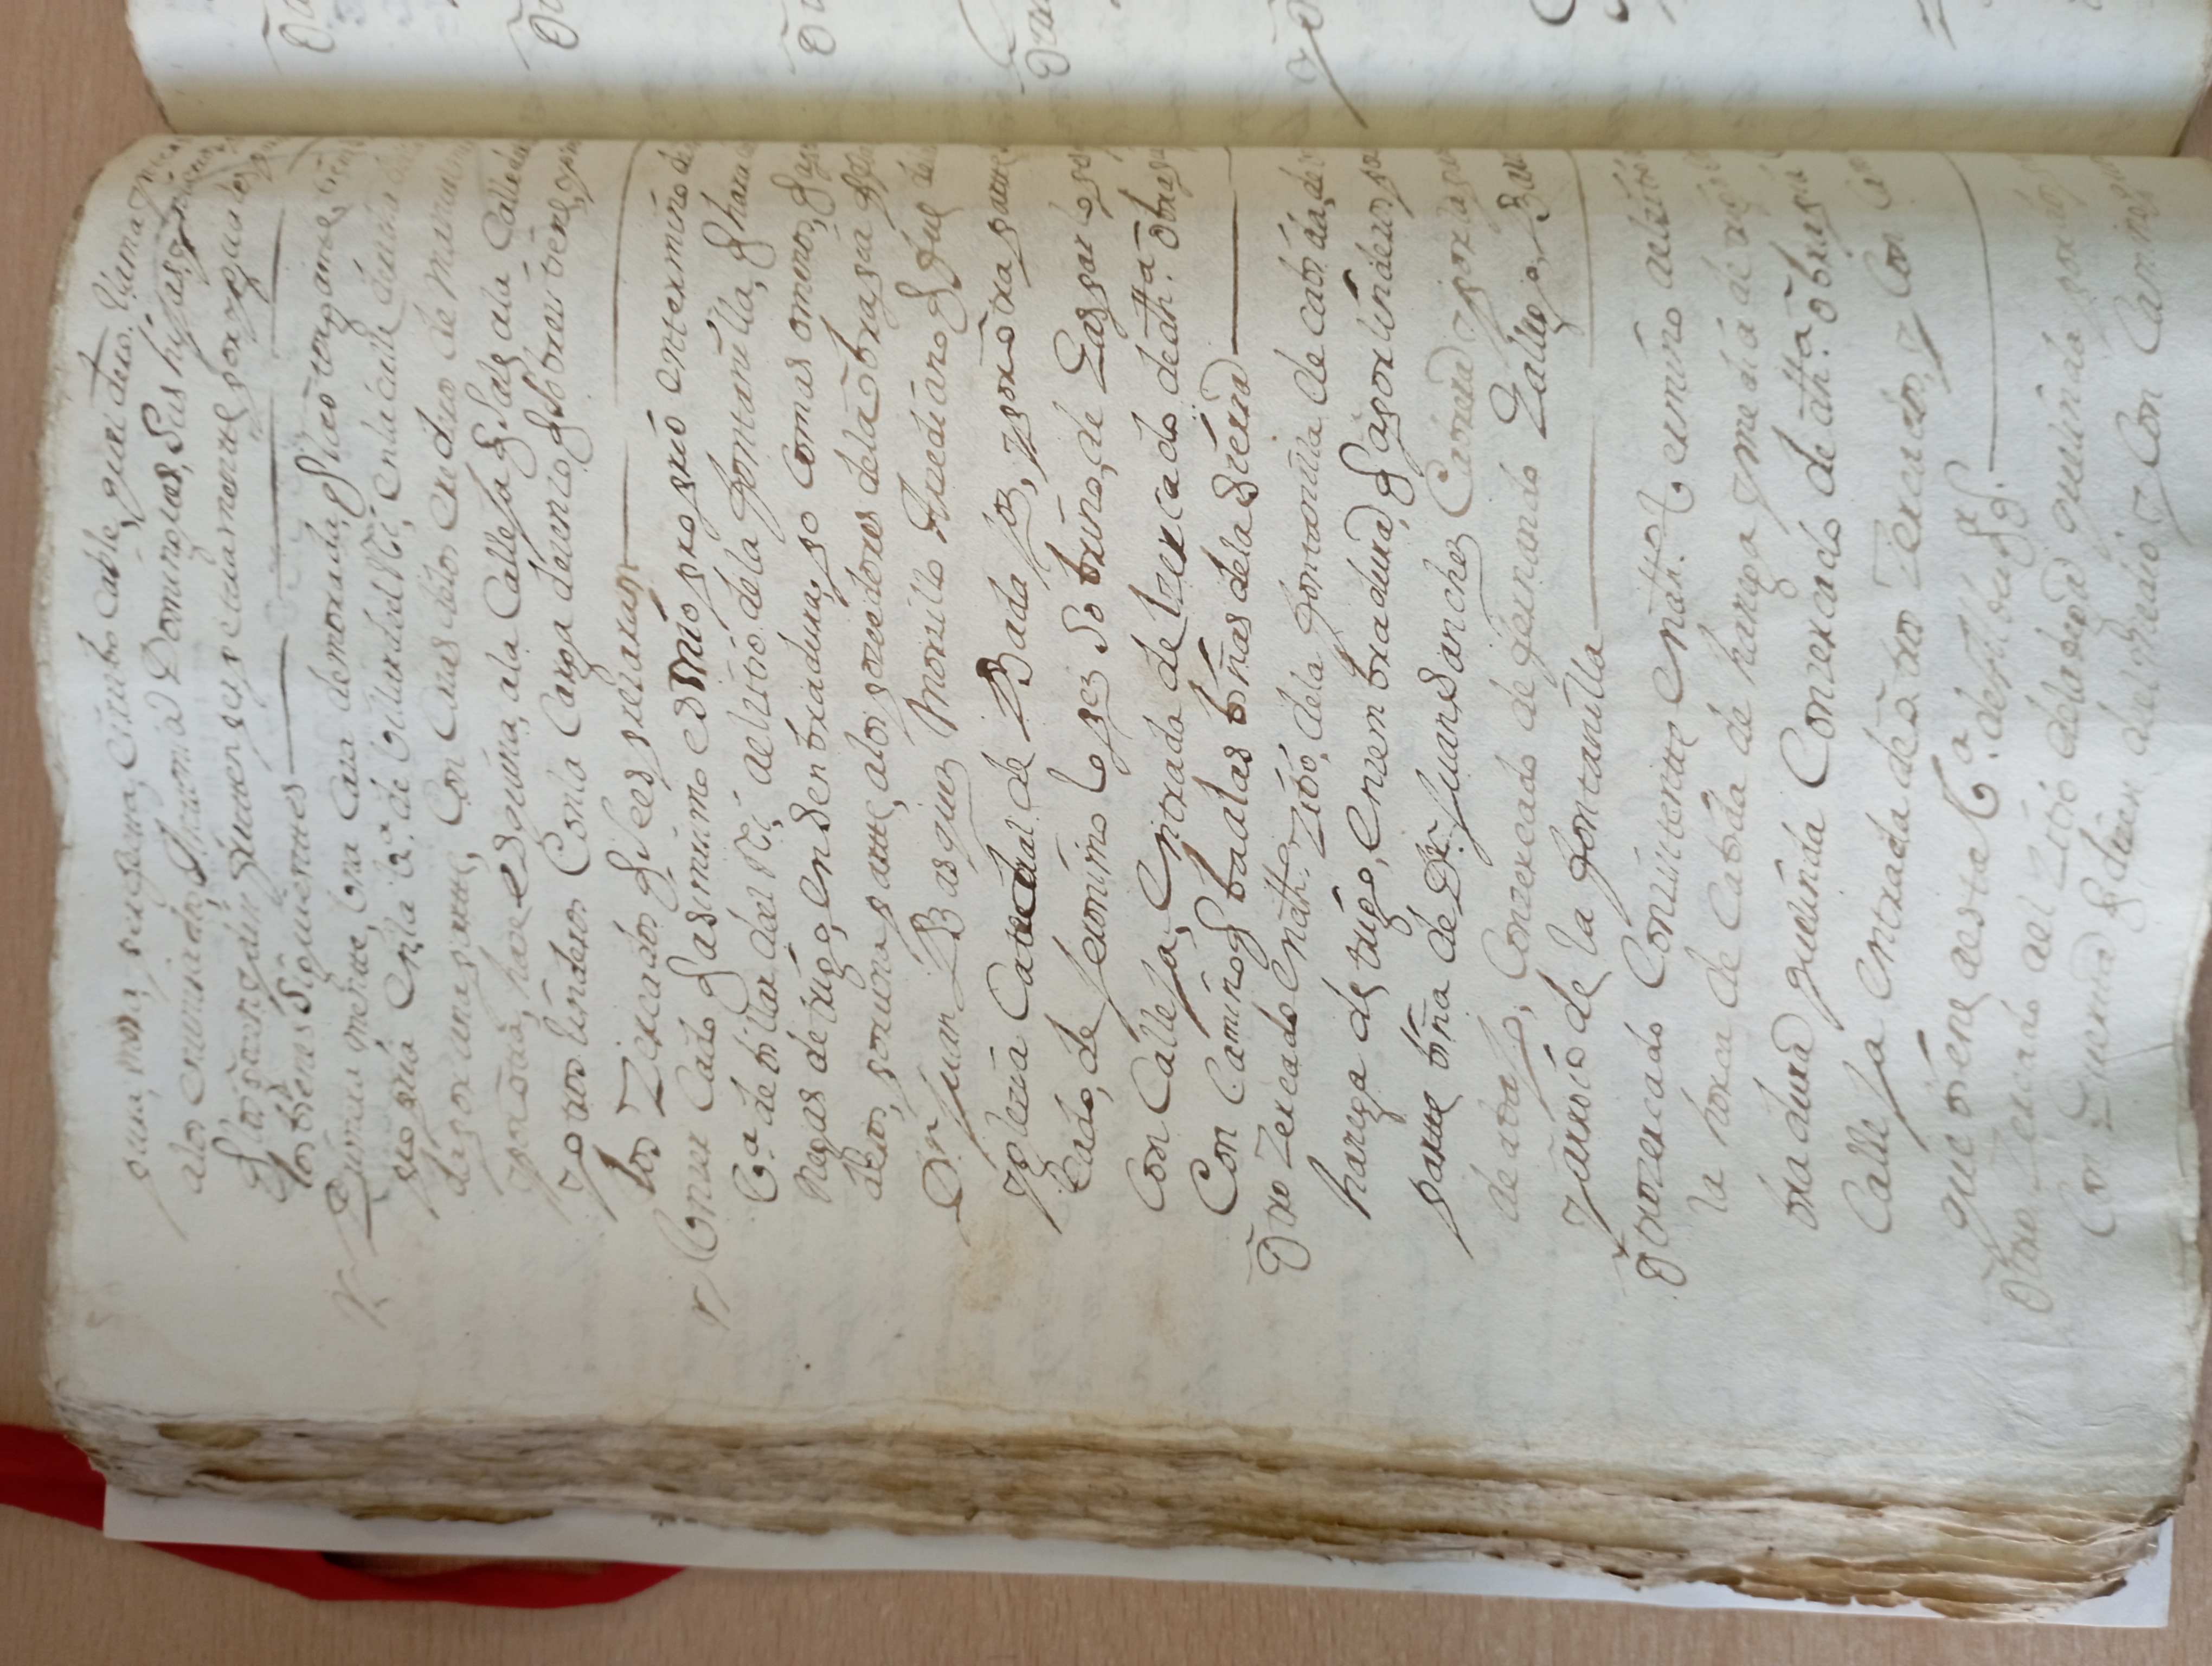 pura, mera, perfecta, e irrebocable, que el dro. llama
alos enunciados, Antonia Domingues, Sus hijas,
q̃ los gozen y disfrutten perpetuamentte por yguales
los bienes Siguienttes
Primera mentte, Una Casa de morada, q̃ la õtorgante,
propria En la Vª. de Villar del Rei, en la calle derecha
da por una partte, Con Casas delos eredeos de Manuel
y por õtra, hase esquina, ala Calleja q̃ Sale ala Calle de
y otros linderos Con la Carga de zenso q̃ Sobre si tiene,
los Zercados q̃ Se espresaran
Un zer Cado q̃ asimismo es mio proprio En termino de
Vª. de billar del Rei, ael zitio de la fontanilla, q̃ hara
negas de trigo, en Senbradura, po Co mas o menos,
deros, por una partte, alos poseedores de la õbra pia q̃
Dr. Juan Basques Morzillo Arzediano q̃ fue de
yglezia Catedral de Bada joz, y por õtra partte
cado, de Jeronimo Lopez Sobrino, de Gaspar Lopez
Con Calleja, Entrada del zercado de dhª. õbra
Con Camino q̃ ba a las biñas de la Sierra
Õtro Zercado En dhº. zitio, de la fontanilla de cabida, de
hanega de trigo, En zembradura, q̃ a por linderos por
partte biña de Dr. Juan Sanches Cabrera y por la
de abajo, Con zercado de fernando Gallego,
y arroio de la fontanilla
Õtro zercado Con zistentte En dhº. termino ael zitio
la horca de Cabida de hanega y media de trigo
bradura que linda Con zercado de dhª. õbra pia
Calleja Entrada de õtros Zercados, y Con
que biene a esta Vª. de Alburqq.
Õtro Zercado ael Zitio de la bega que linda por
Con Zuerte q̃ dizen del medio y Con Camino